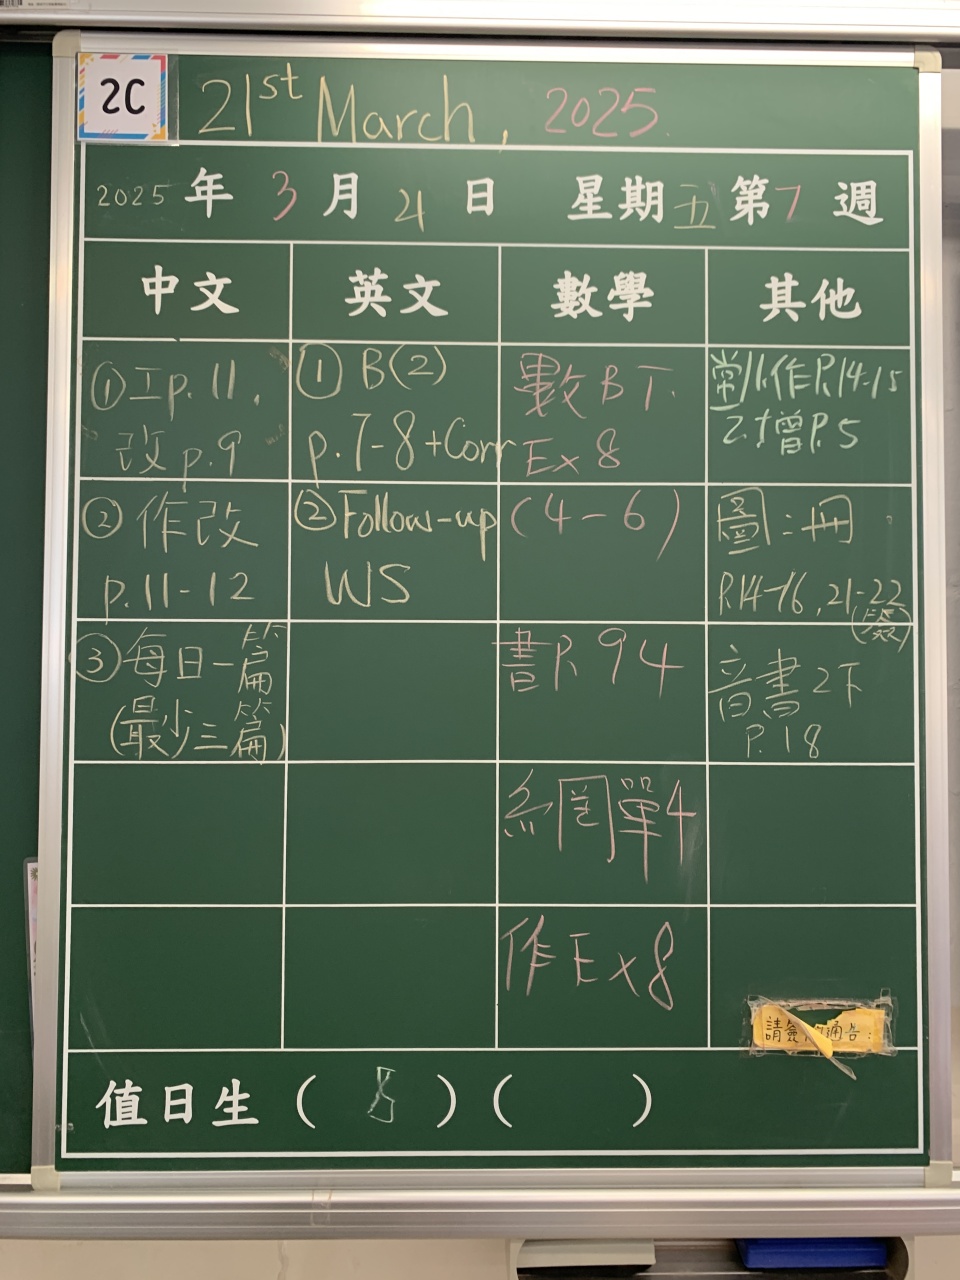 2C
21st March, 2025
2025 年 3 月 21 日 星期五 第7週
中文 英文 數學 其他
①工p.11,
改p.9
②作改
p.11-12
③每日一篇
(最少三篇)
①B(2)
p.7-8+Corr
②Follow-up
WS
數B下.
Ex 8
(4-6)
書P.94
網單4
作Ex8
作P.14-15
P.5
圖二冊
P.14-16, 21-22
音書2下
P.18
請 通告
值日生 ( 8 ) ( )